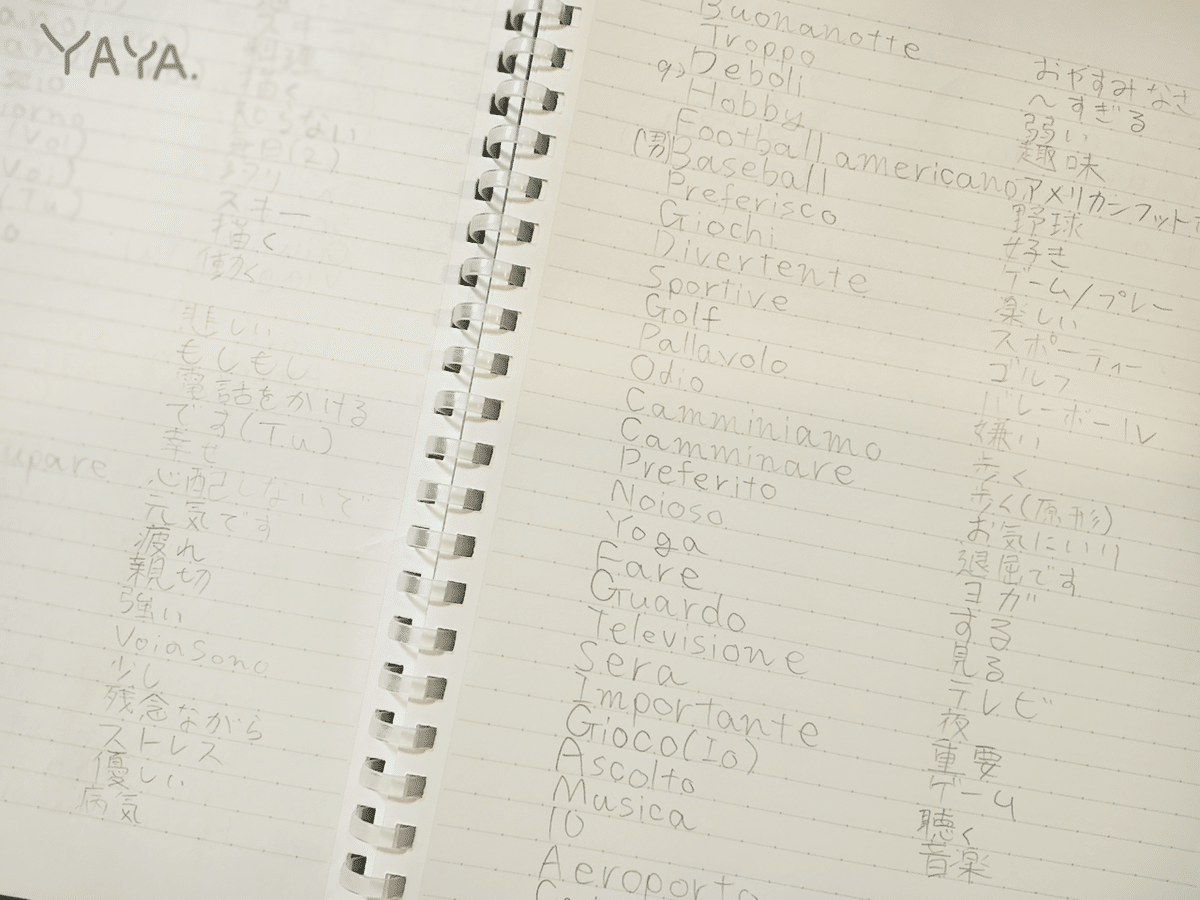 YAYA.
知らない
毎日(2)
スキー
描く
働く
悲しい
もしもし
電話をかける
です(Tu)
幸せ
upare 心配しないで
元気です
疲れ
親切
強い
Voiasono
少し
残念ながら
ストレス
優しい
病気
Buonanotte おやすみなさ
Troppo ~すぎる
9> Deboli 弱い
Hobby 趣味
Football americano アメリカンフット
(男)Baseball 野球
Preferisco 好き
Giochi ゲーム/プレー
Divertente 楽しい
Sportive スポーティー
Golf ゴルフ
Pallavolo バレーボール
Odio 嫌い
Camminiamo 歩く
Camminare 歩く(原形)
Preferito お気にいり
Noioso 退屈です
Yoga ヨガ
Fare する
Guardo 見る
Televisione テレビ
Sera 夜
Importante 重要
Gioco(Io) ゲーム
Ascolto 聴く
Musica 音楽
10
Aeroporto